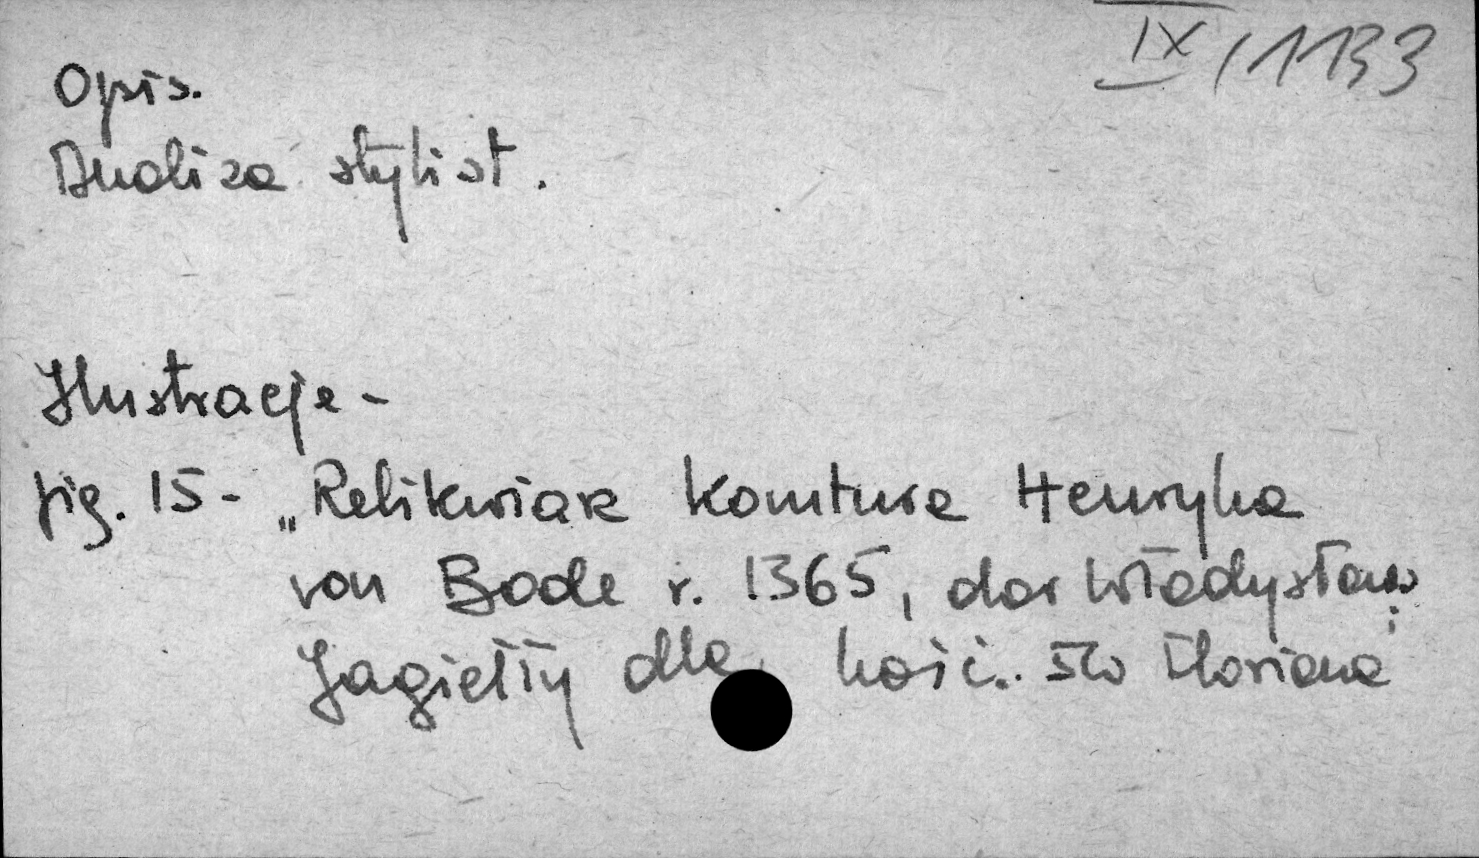 IX/1133
Opis.
Analiza stylist.
Ilustracje -
fig. 15 - „Relikwiarz Komtura Henryka
von Bode r. 1365, dar Władysława
Jagiełły dla kość. św Floriana